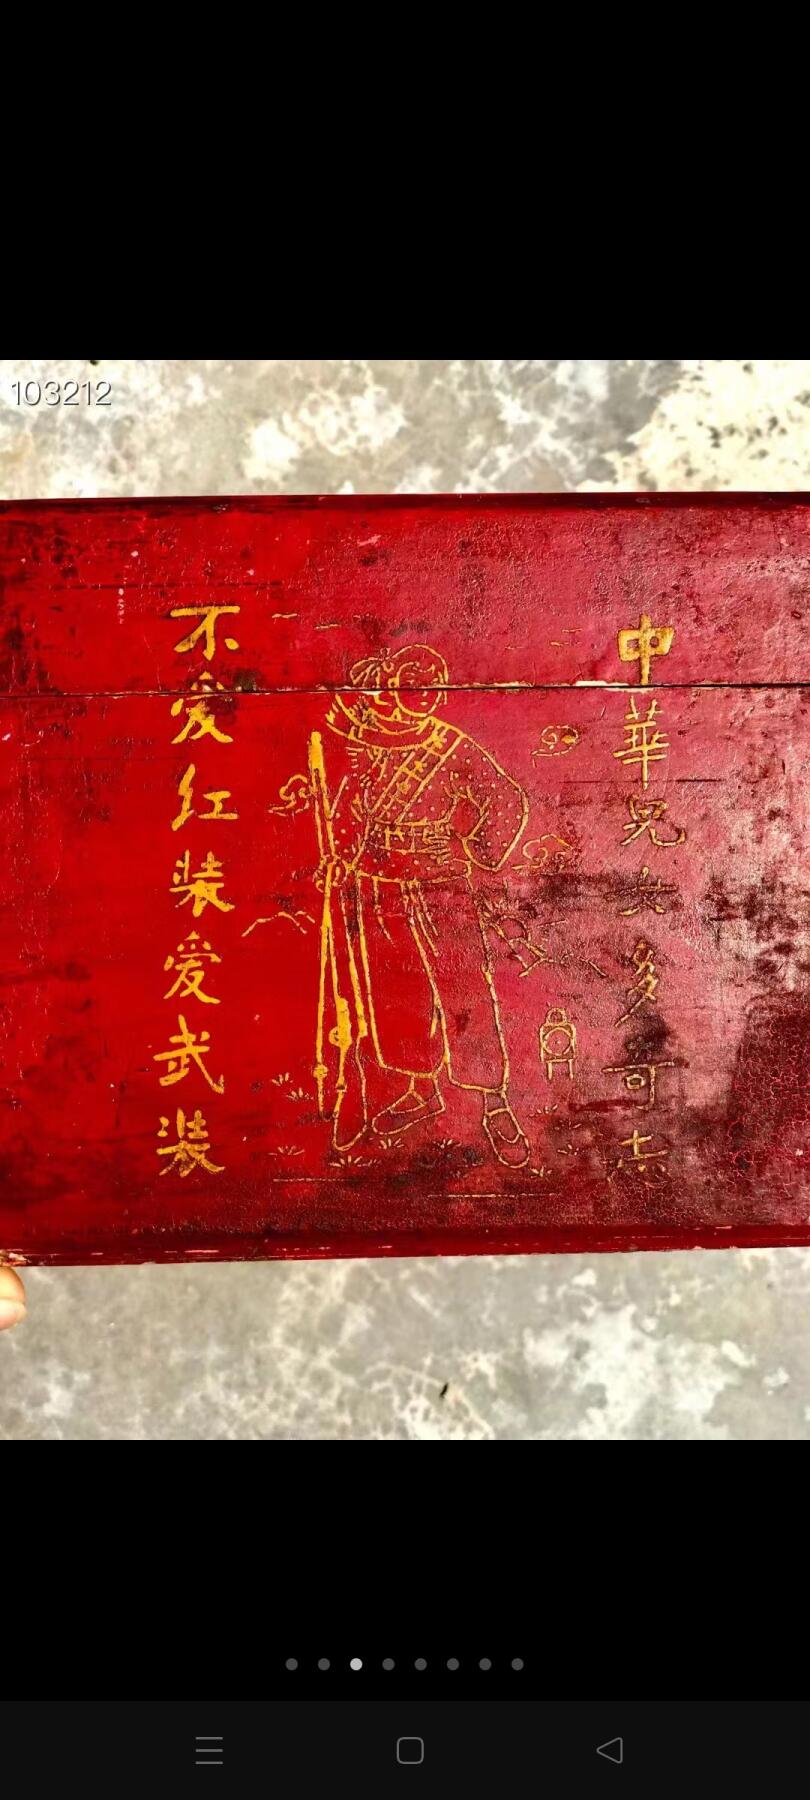 103212
中華兒女多奇志
不爱红装爱武装